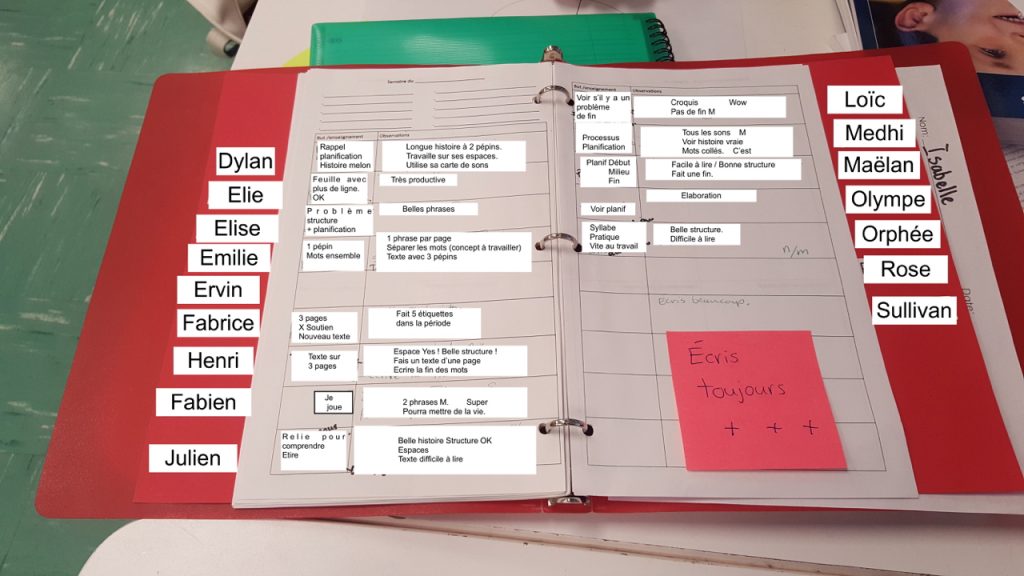 Semaine du
But /enseignement Observations
Dylan
Rappel
planification
Histoire melon
Longue histoire à 2 pépins.
Travaille sur ses espaces.
Utilise sa carte de sons
Elie
Feuille avec
plus de ligne.
OK
Très productive
Elise
Problème
structure
+ planification
Belles phrases
Emilie
1 pépin
Mots ensemble
1 phrase par page
Séparer les mots (concept à travailler)
Texte avec 3 pépins
Ervin
Fabrice
3 pages
X Soutien
Nouveau texte
Fait 5 étiquettes
dans la période
Henri
Texte sur
3 pages
Espace Yes ! Belle structure !
Fais un texte d'une page
Ecrire la fin des mots
Fabien
Je
joue
2 phrases M. Super
Pourra mettre de la vie.
Julien
Relie pour
comprendre
Etire
Belle histoire Structure OK
Espaces
Texte difficile à lire
But /enseignement Observations
Voir s'il y a un
problème
de fin
Croquis Wow
Pas de fin M
Loïc
Processus
Planification
Tous les sons M
Voir histoire vraie
Mots collés. C'est
Medhi
Planif Début
Milieu
Fin
Facile à lire / Bonne structure
Fait une fin.
Maëlan
Voir planif
Elaboration
Olympe
Syllabe
Pratique
Vite au travail
Belle structure.
Difficile à lire
Orphée
n/m
Rose
Écris beaucoup.
Sullivan
Écris
toujours
+ + +
Nom:
Isabelle
Date: